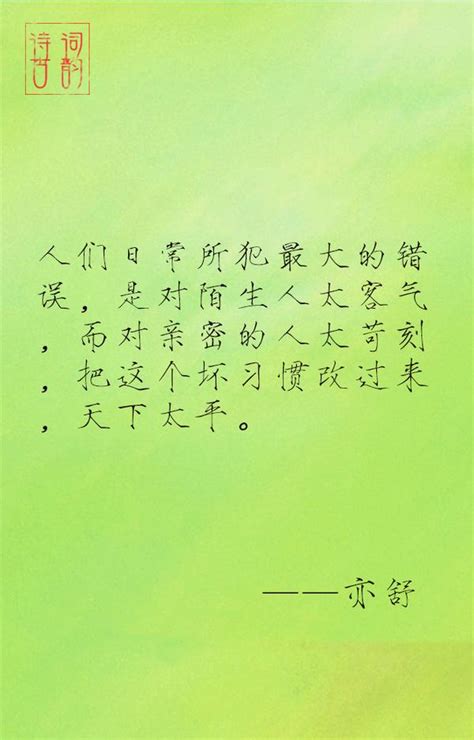 诗词
古韵
人们日常所犯最大的错
误，是对陌生人太客气
，而对亲密的人太苛刻
，把这个坏习惯改过来
，天下太平。
——亦舒